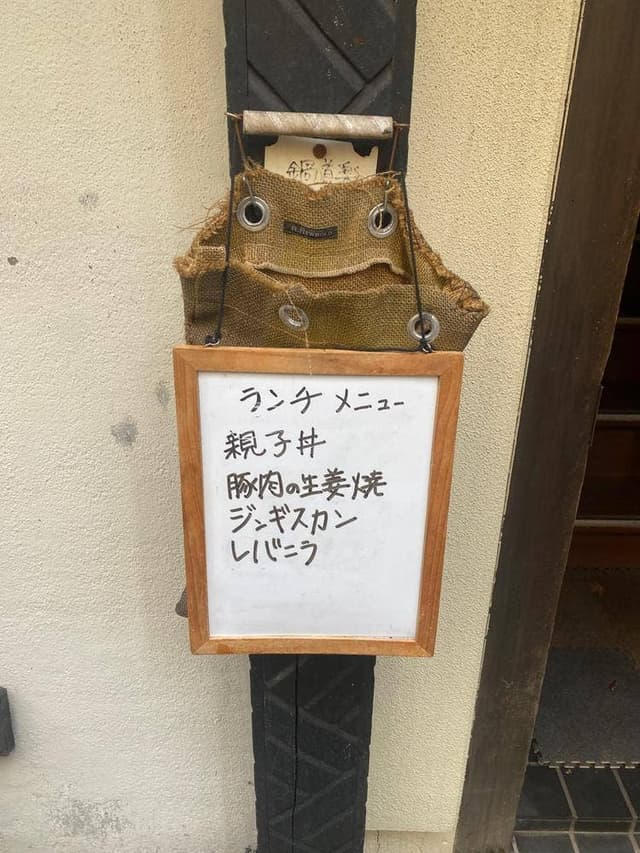 鍋道楽
ランチ メニュー
親子丼
豚肉の生姜焼
ジンギスカン
レバニラ